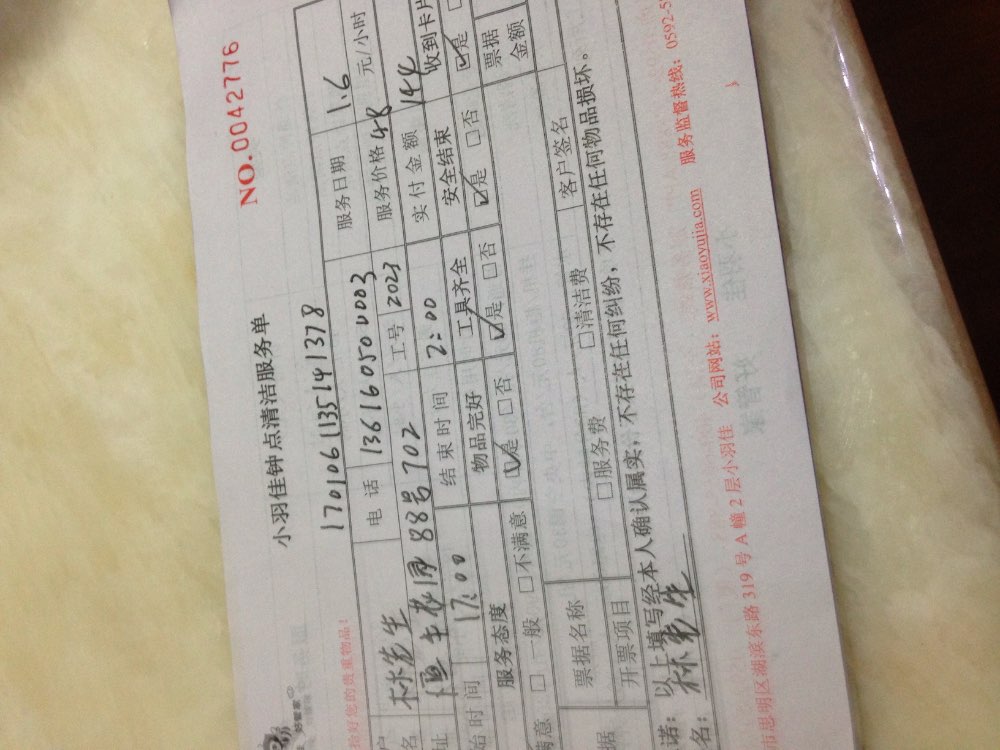 小羽佳钟点清洁服务单
NO.0042776
好管家
拾好您的贵重物品!
1701061135141378
户名 林先生 电 话 13616050003 服务日期 1.6
址 88号702 工号 2023 服务价格 48 元/小时
始时间 17:00 结束时间 2:00 实付金额 144
服务态度 物品完好 工具齐全 安全结束 收到卡片
满意 □一般 □不满意 ☑是 □否 ☑是 □否 ☑是 □否 ☑是
据 票据名称 客户签名 票据金额
开票项目 □服务费 □清洁费
诺: 以上填写经本人确认属实,不存在任何纠纷,不存在任何物品损坏。
名: 林先生
市思明区湖滨东路 319 号 A 幢 2 层小羽佳 公司网站: www.xiaoyujia.com 服务监督热线: 0592-5